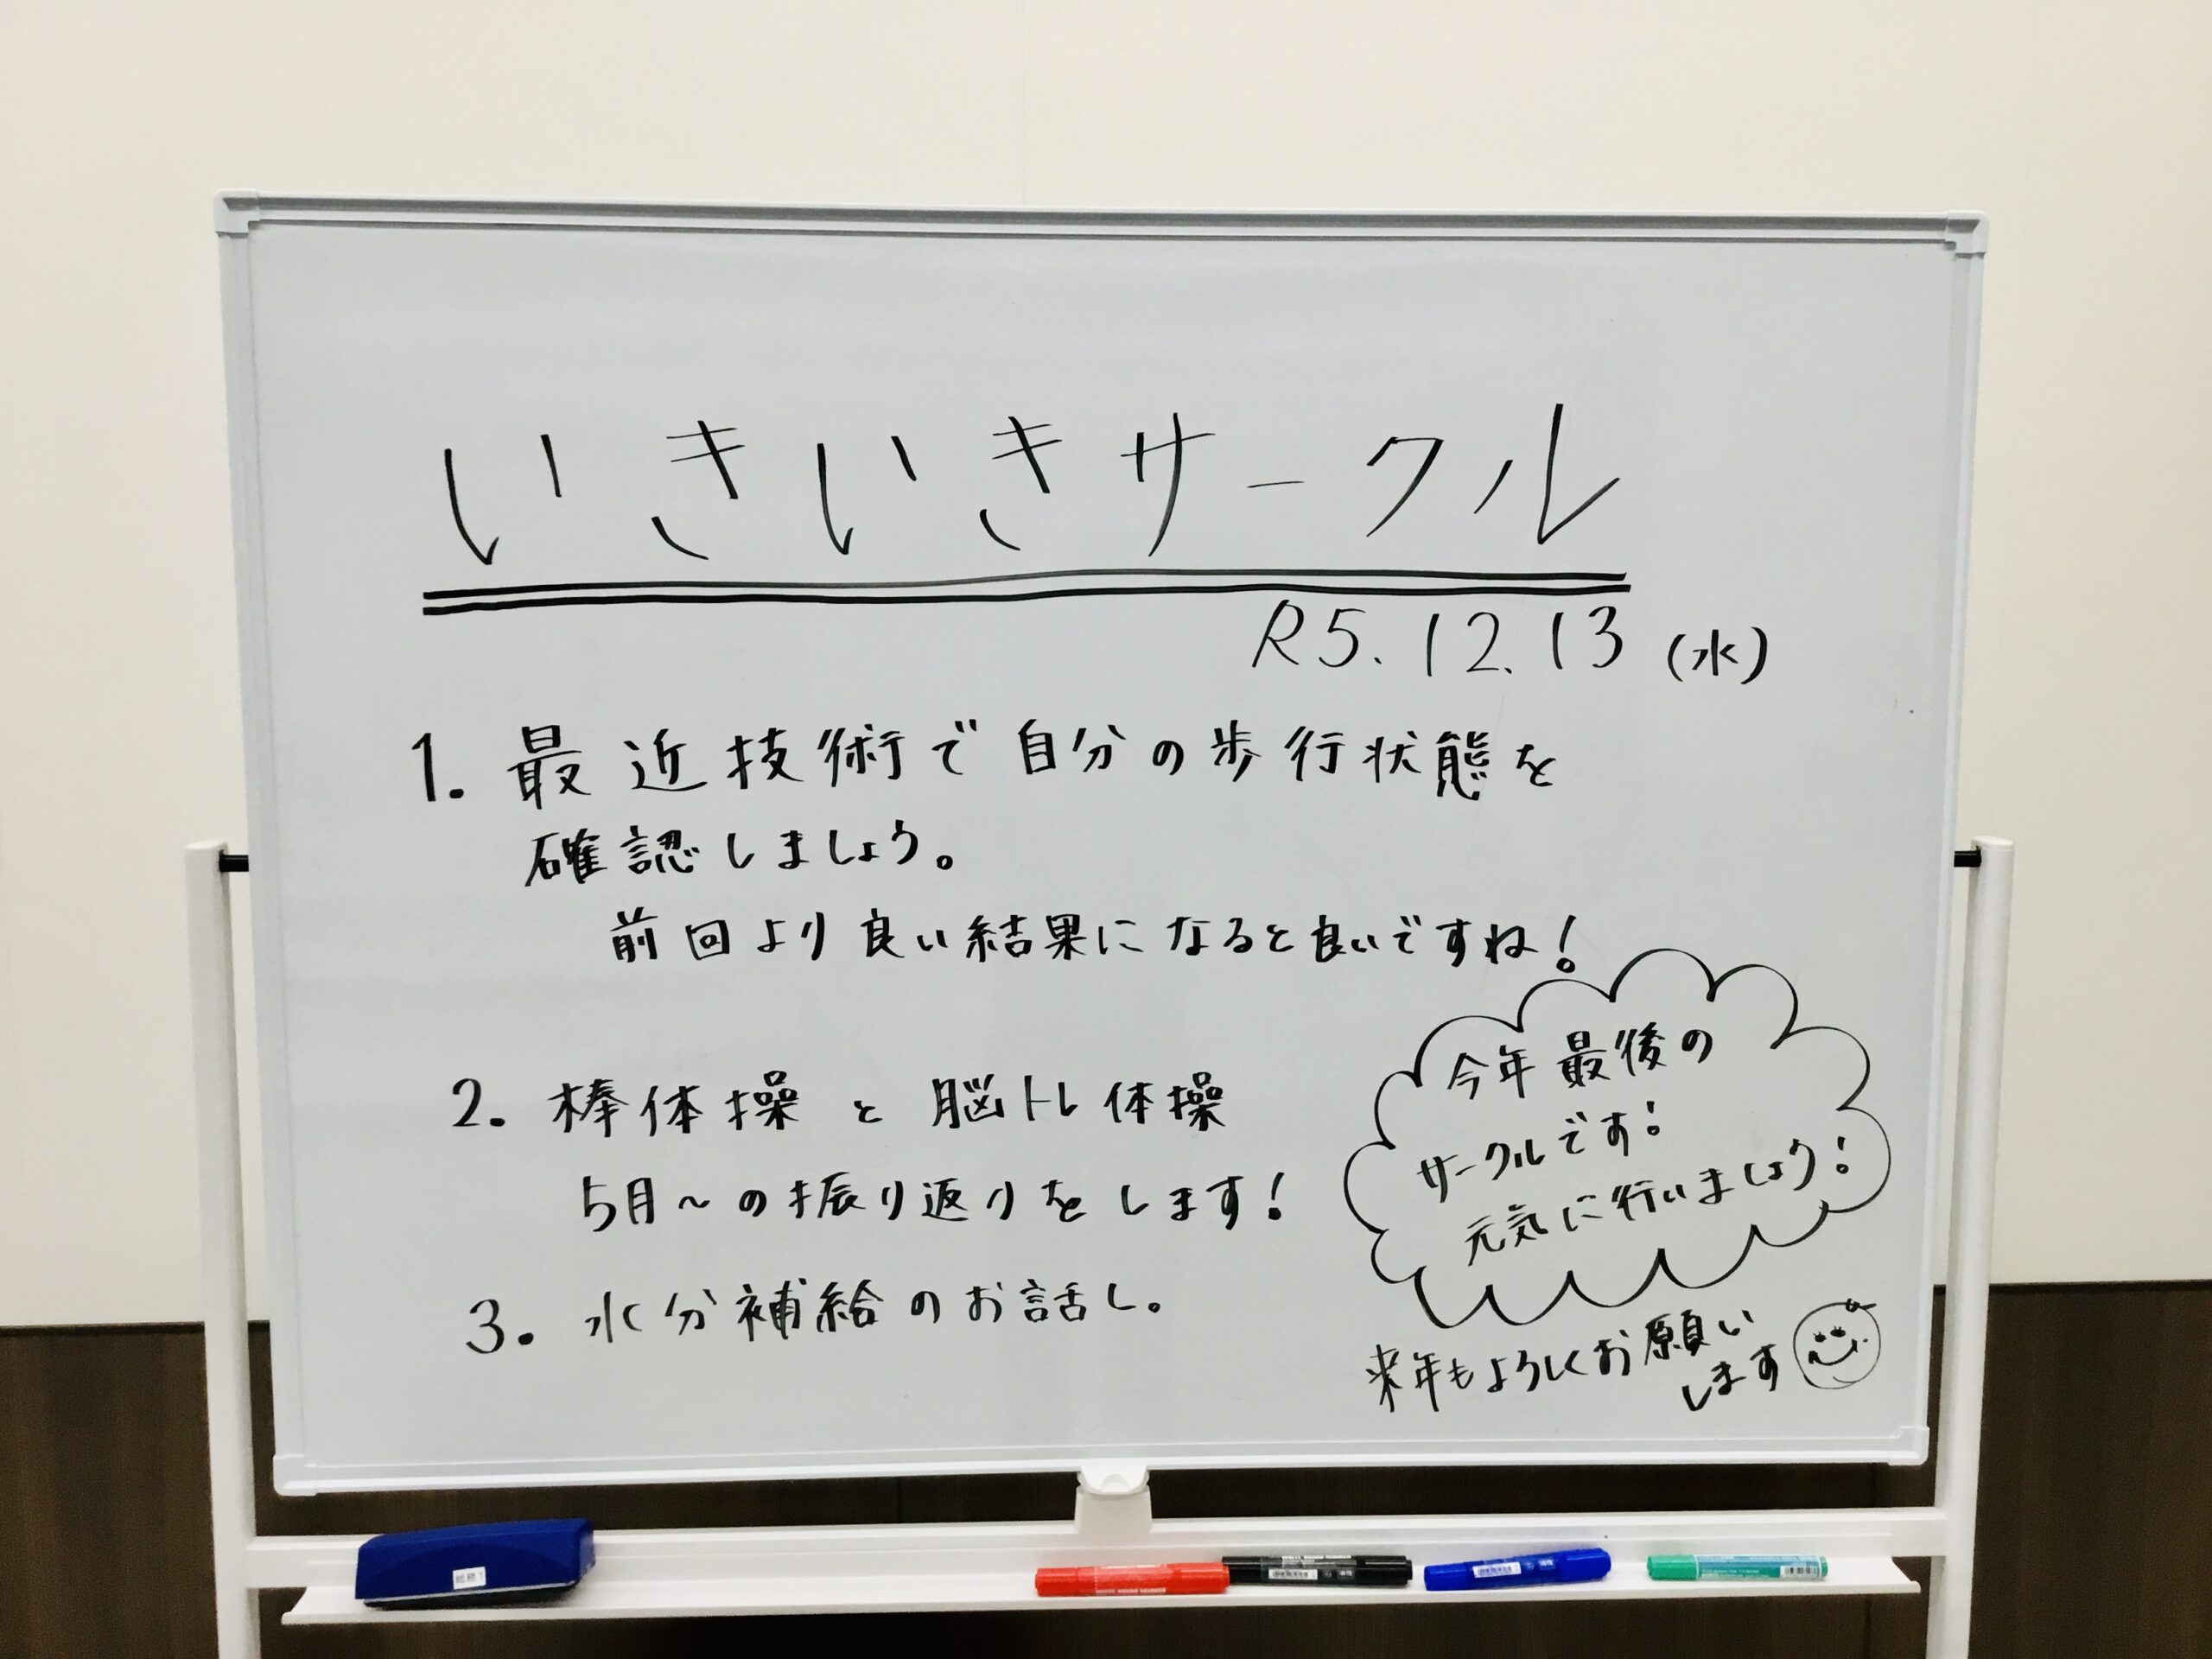 いきいきサークル
R5.12.13(水)
1. 最近技術で自分の歩行状態を
確認しましょう。
前回より良い結果になると良いですね!
2. 棒体操と脳トレ体操
5月〜の振り返りをします!
3. 水分補給のお話し。
今年最後の
サークルです!
元気に行いましょう!
来年もよろしくお願い
します